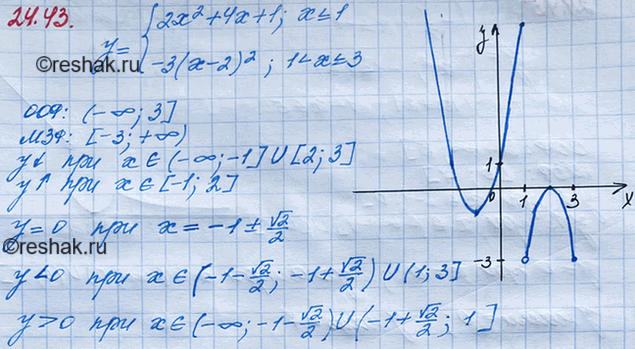 24.43.
y= { 2x²+4x+1; x≤1
©reshak.ru
-3(x-2)²; 1<x≤3
ООФ: (-∞; 3]
МЗФ: [-3; +∞)
y↓ при x∈(-∞;-1]∪[2;3]
y↑ при x∈[-1; 2]
y=0 при x=-1±√2/2
©reshak.ru
y<0 при x∈(-1-√2/2; -1+√2/2)∪(1;3]
y>0 при x∈(-∞;-1-√2/2)∪(-1+√2/2; 1]
y
1
0 1 3 x
-3